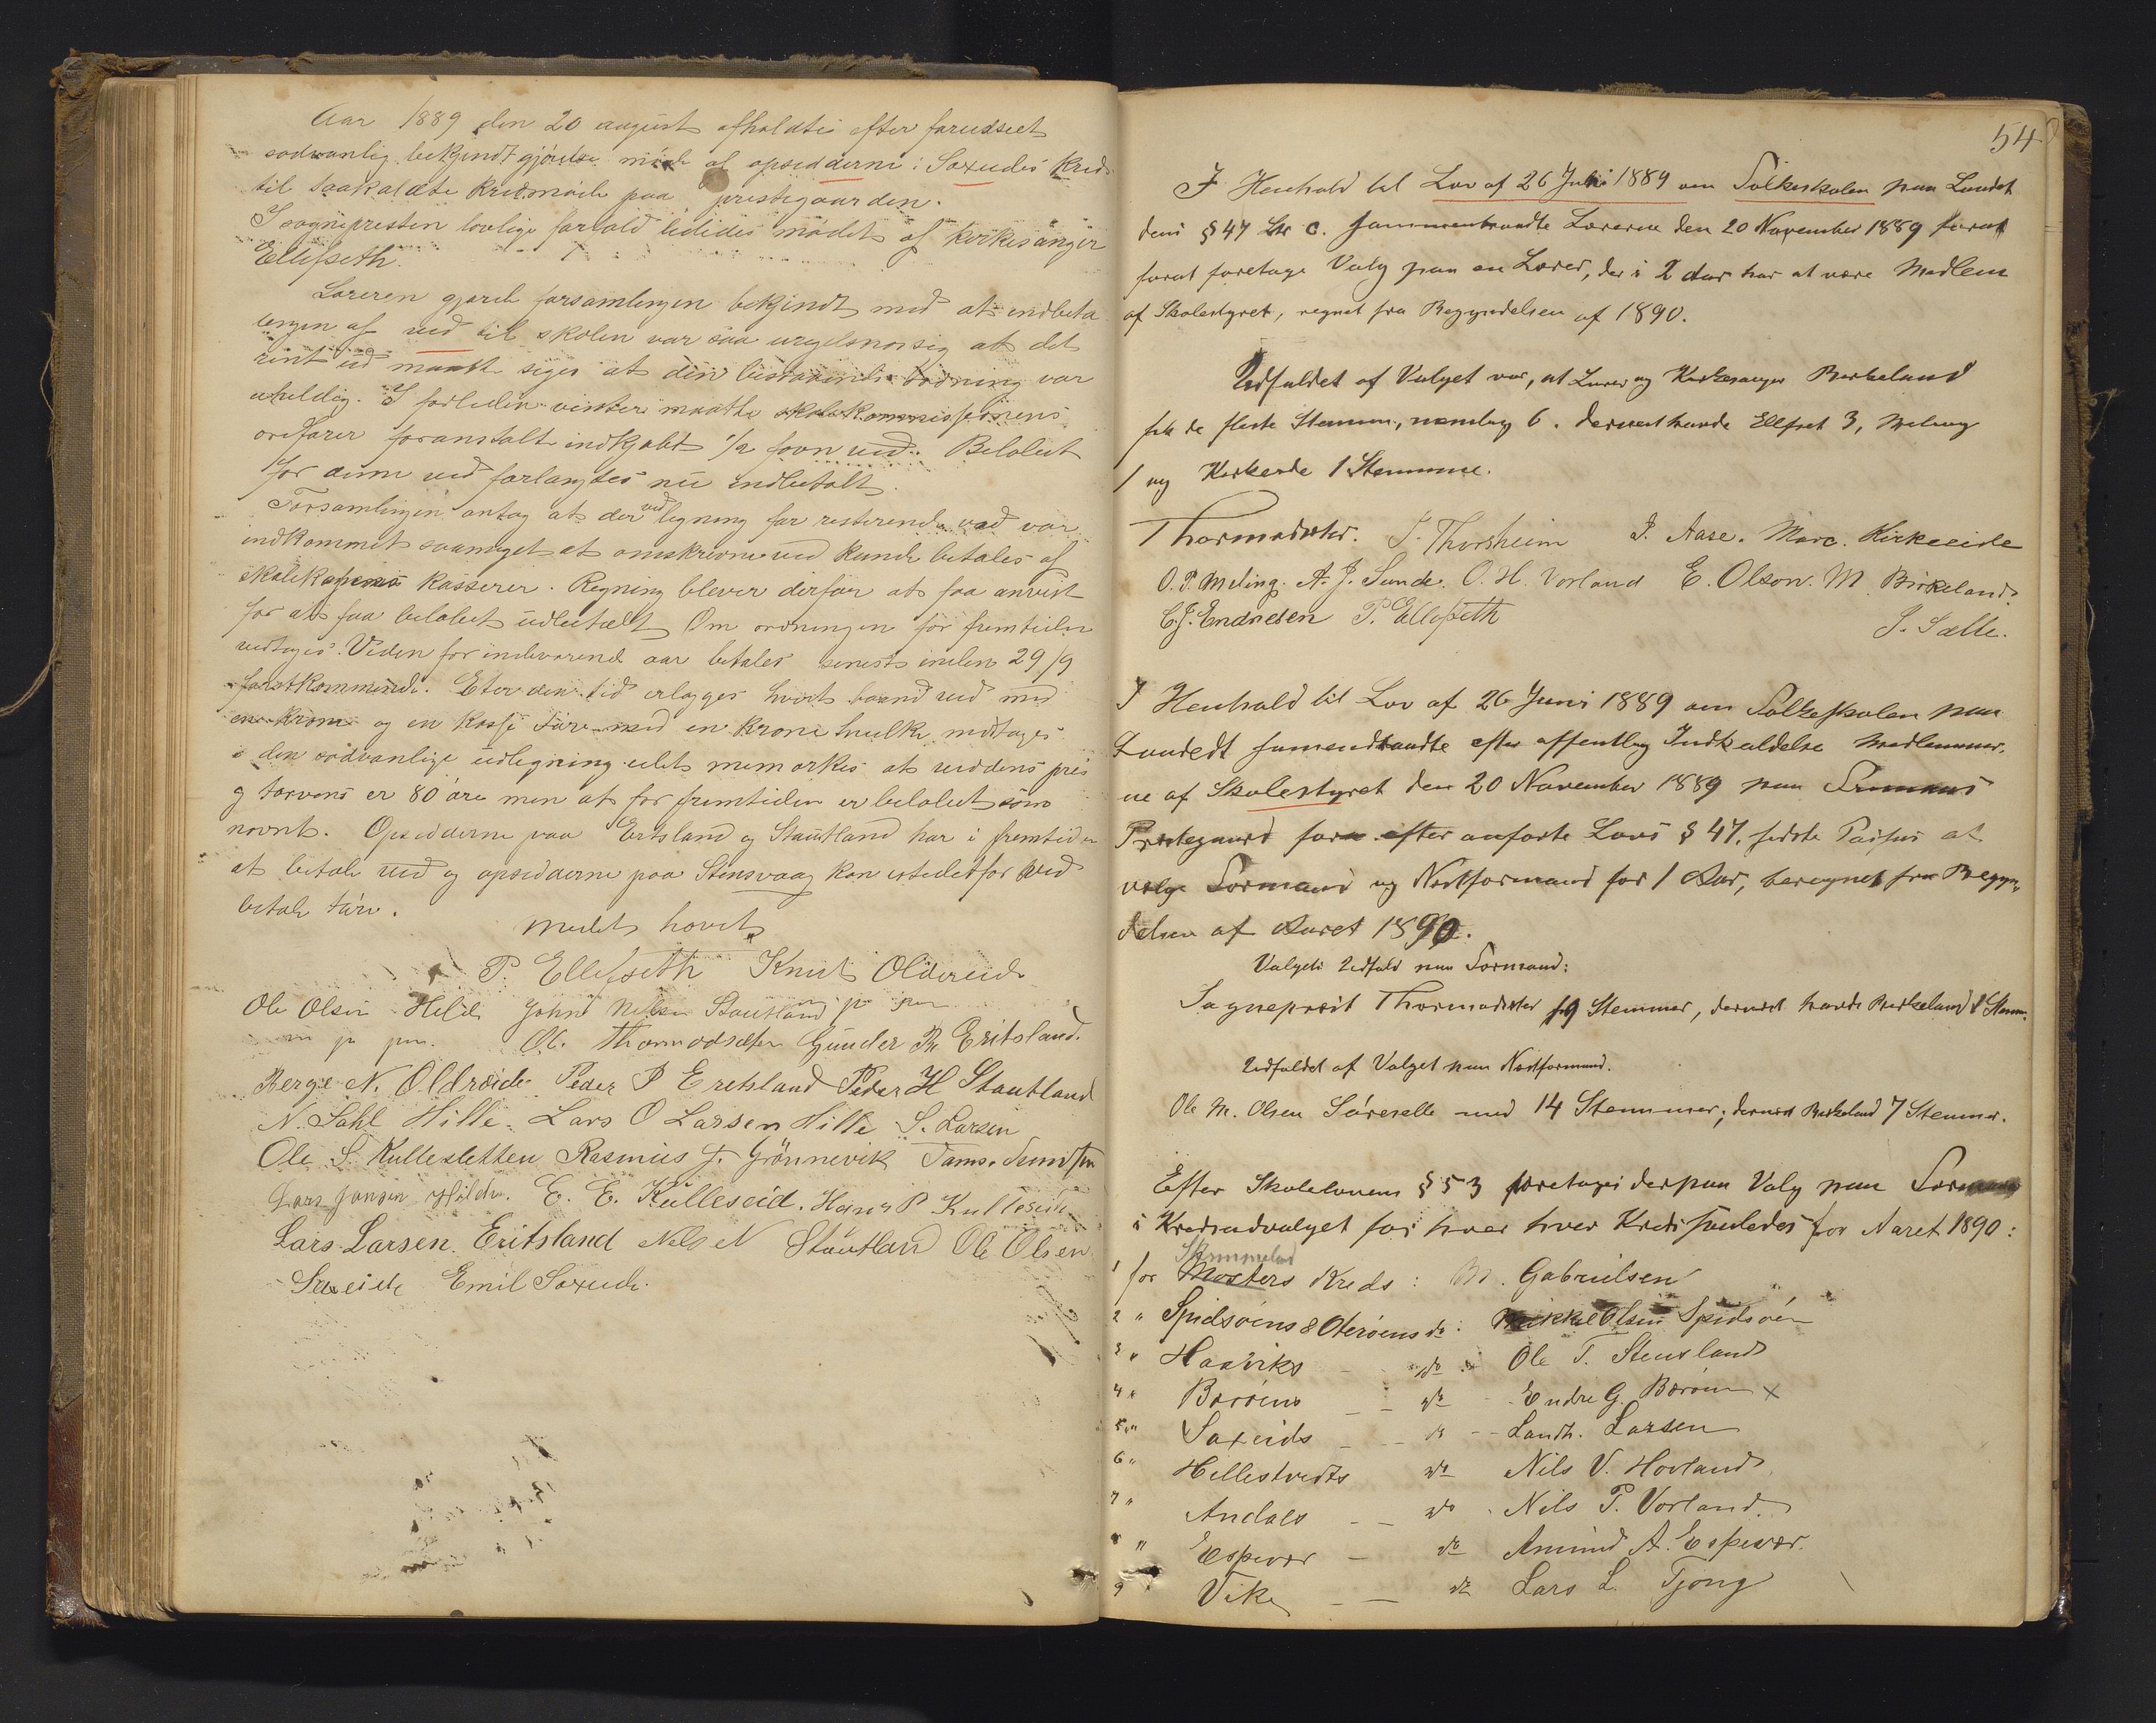 Aar 1889 den 20 august afholdtes efter forudseet
sædvanlig bekjendtgjørelse møde af opsidderne i Saxeides Kreds
til saakaldte kredsmøde paa prestegaarden.
I sognepresten lovlige forfald lededes mødet af kirkesanger
Ellefseth.
Læreren gjorde forsamlingen bekjendt med at indbeta
lingen af ved til skolen var saa uregelmæsig at det
rent ud maatte siges at den bestaaende ordning var
uheldig. I forleden vinter maatte skolekommissionens
ordfører foranstalte indkjøbt 1/2 favn ved. Beløbet
for denne ved forlangtes nu indbetalt.
Forsamlingen antog at der ved ligning for resterende ved var
indkommet saameget at omskrevne ved kunde betales af
skolekassens kasserer. Regning blever derfor at faa anvist
for at faa beløbet udbetalt. Om ordningen for fremtiden
vedtoges: Veden for indeværende aar betales senest inden 29/9
førstkommende. Efter den tid erlægges hvert baand ved med
en krone og en kasse törv med en krone hvilke medtages
i den sædvanlige udligning. Det bemærkes at veddens pris
og torvens er 80 öre men at for fremtiden er beløbet som
nævnt. Opsidderne paa Eritsland og Stautland har i fremtiden
at betale ved og opsidderne paa Stensvaag kan istedetfor ved
betale törv.
Mødet hævet
P. Ellefseth Knut Oldereide
Ole Olsen Hilde John Nilsen Stautland m p pen
m p pen. Ol. Thormodsæter Gunder P. Eritsland.
Berge N. Oldreide Peder P Eretsland Peder H Stautland
N. Dahl Hille. Lars O Larsen Hille S. Larsen
Ole S. Kullesletten Rasmus J. Grönnevik
Lars Jansen Hilde. E. E. Kulleseid. Hans P Kulleseide
Lars Larsen Eritsland Nels N Stautland Ole Olsen
Saxeide Emil Saxeide.
54
I Henhold til Lov af 26 Juni 1889 om Folkeskolen paa Landet
dens § 47 Ltr c. sammentraadte Lærerne den 20 November 1889 forat
forat foretage Valg paa en Lærer, der i 2 Aar har at være Medlem
af Skolestyret, regnet fra Begyndelsen af 1890.
Udfaldet af Valget var, at Lærer og Kirkesanger Birkeland
fik de fleste Stemmer, nemlig 6. dernæst havde Ellefset 3, Meling
1 og Kirkeide 1 Stemme.
Thormodsæter. J. Thorsheim J. Aase. Marc. Kirkeeide
O. P. Meling. A. J. Sunde. O. H. Vorland E. Olson. M. Birkeland.
C. J. Endresen P. Ellefseth J. Sælle.
I Henhold til Lov af 26 Juni 1889 om Folkeskolen paa
Landedt samendtraadte efter offentlig Indkaldelse Medlemmer,
ne af Skolestyret den 20 November 1889 paa Finnaas
Prestegaard for efter anførte Lovs § 47, sidste Passus at
vælge Formand og Næstformand for 1 Aar, beregnet fra Begyn,
delsen af Aaret 1890.
Valgets Udfald paa Formand:
Sognepræst Thormodsæter 19 Stemmer, dernæst havde Birkeland 2 Stemm.
Udfaldet af Valget paa Næstformand.
Ole M. Olsen Sörevelle med 14 Stemmer; dernæst Birkeland 7 Stemmer.
Efter Skolelovens § 53 foretoges derpaa Valg paa Formænd
i Kredsudvalget for hver hver Kreds saaledes for Aaret 1890:
Skimmeland
1 for Mosters Kreds: M. Gabrielsen
2 " Spidsöens & Oteröens do: Mikkel Olsen Spidsöen
3 " Haaviks - do: Ole T. Stensland
4 " Baröens - - do - Endre G. Baröen x
5 " Saxeids - - do - - Landh. Larsen
6 " Hellestvedts do Nils V. Hovland
7 " Andals - - do - Nils P. Vorland.
8 " Espevær - do Amund A. Espevær.
9 Vike - - do Lars L. Tjong